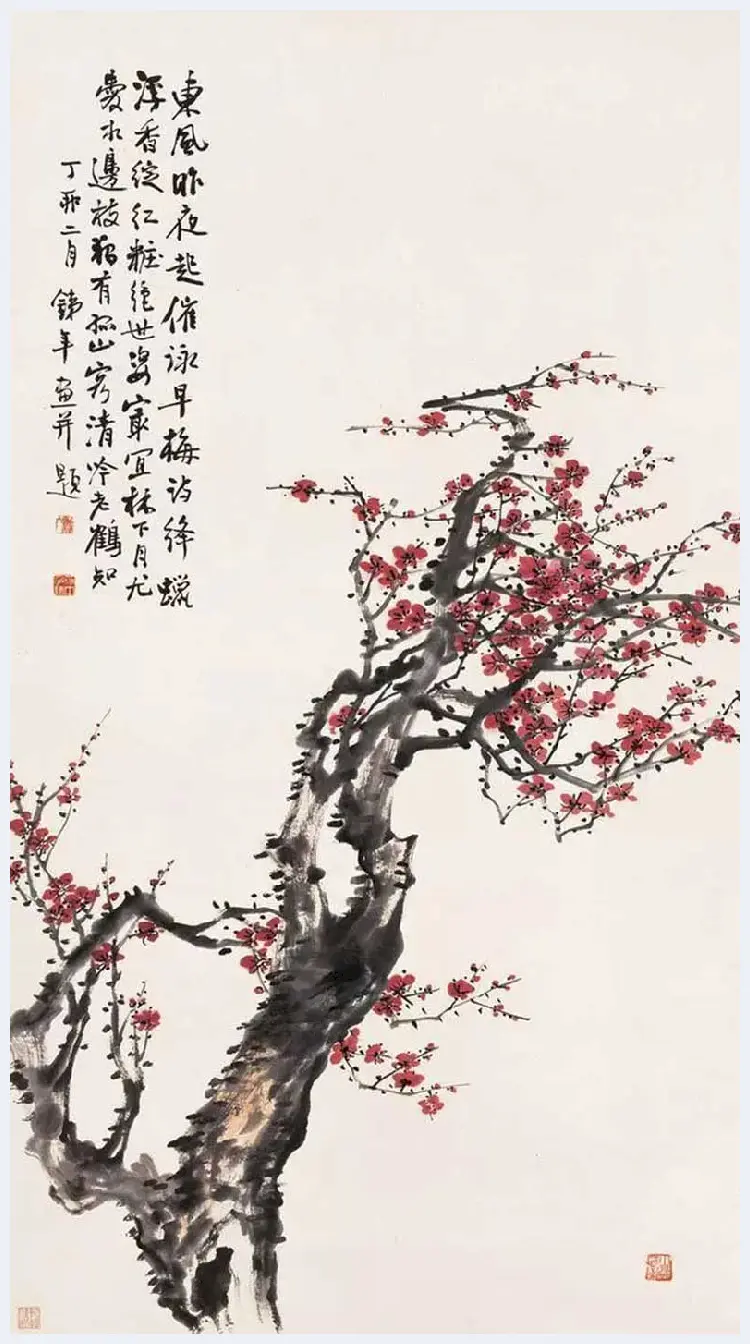 東風昨夜起催詠早梅詩絳蠟
浮香綻紅粧絕世姿最宜林下月尤
愛水邊枝獨有孤山客清冷老鶴知
丁卯二月 銻年畫并題